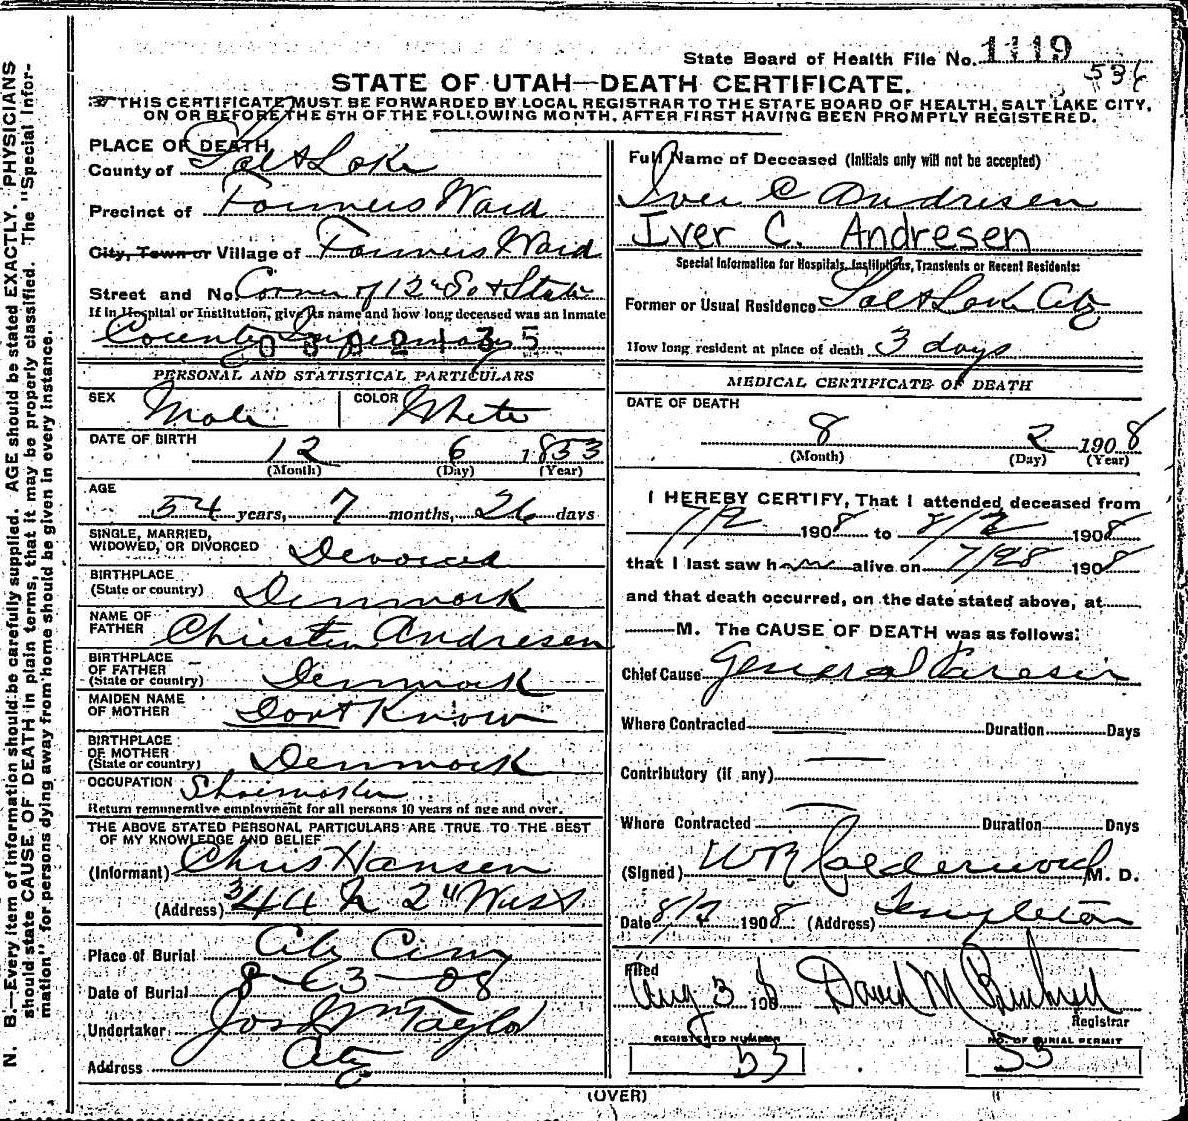 State Board of Health File No. 1119
536
STATE OF UTAH—DEATH CERTIFICATE.
THIS CERTIFICATE MUST BE FORWARDED BY LOCAL REGISTRAR TO THE STATE BOARD OF HEALTH, SALT LAKE CITY,
ON OR BEFORE THE 5TH OF THE FOLLOWING MONTH, AFTER FIRST HAVING BEEN PROMPTLY REGISTERED.
N. B.—Every item of information should be carefully supplied. AGE should be stated EXACTLY. PHYSICIANS
should state CAUSE OF DEATH in plain terms, that it may be properly classified. The "Special Infor-
mation" for persons dying away from home should be given in every instance.
PLACE OF DEATH
County of Salt Lake
Precinct of Farmers Ward
City, Town or Village of Farmers Ward
Street and No. Corner of 12" So & State
If in Hospital or Institution, give its name and how long deceased was an inmate
County Infirmary
0802135
PERSONAL AND STATISTICAL PARTICULARS
SEX Male COLOR White
DATE OF BIRTH 12 6 1853
(Month) (Day) (Year)
AGE 54 years, 7 months, 26 days
SINGLE, MARRIED,
WIDOWED, OR DIVORCED Devorced
BIRTHPLACE
(State or country) Denmark
NAME OF
FATHER Christen Andresen
BIRTHPLACE
OF FATHER
(State or country) Denmark
MAIDEN NAME
OF MOTHER Dont Know
BIRTHPLACE
OF MOTHER
(State or country) Denmark
OCCUPATION Shoemaker
Return remunerative employment for all persons 10 years of age and over.
THE ABOVE STATED PERSONAL PARTICULARS ARE TRUE TO THE BEST
OF MY KNOWLEDGE AND BELIEF
(Informant) Chris Hansen
(Address) 344 N 2" West
Place of Burial City Cem
Date of Burial 8-3-08
Undertaker Jos Wm Taylor
Address City
Full Name of Deceased (Initials only will not be accepted)
Iver C Andresen
Iver C. Andresen
Special Information for Hospitals, Institutions, Transients or Recent Residents:
Former or Usual Residence Salt Lake City
How long resident at place of death 3 days
MEDICAL CERTIFICATE OF DEATH
DATE OF DEATH
8 2 1908
(Month) (Day) (Year)
I HEREBY CERTIFY, That I attended deceased from
7/2 1908 to 8/2 1908
that I last saw him alive on 7/28 1908
and that death occurred, on the date stated above, at
M. The CAUSE OF DEATH was as follows:
Chief Cause General Paresis
Where Contracted Duration Days
Contributory (if any)
Where Contracted Duration Days
(Signed) W R Calderwood M. D.
Date 8/2 1908 (Address) Templeton
Filed
Aug 3 1908 David M
Registrar
REGISTERED NUMBER NO. OF BURIAL PERMIT
53 53
(OVER)